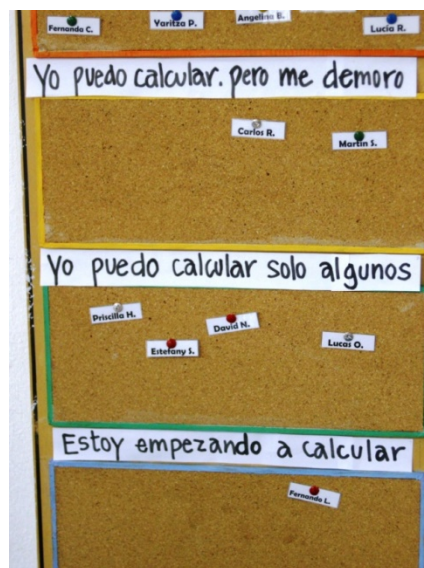 Fernando C.
Yaritza P.
Angelina B.
Lucía R.
Yo puedo calcular. pero me demoro
Carlos R.
Martín S.
Yo puedo calcular solo algunos
Priscilla H.
David N.
Estefany S.
Lucas O.
Estoy empezando a calcular
Fernando L.